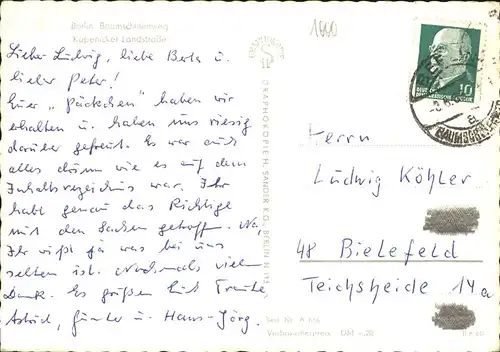 Berlin Baumschulenweg
Köpenicker Landstraße
1000
Lieber Ludwig, liebe Berta u.
lieber Peter!
Euer „Päckchen" haben wir
erhalten u. haben uns riesig
darüber gefreut. Es war auch
alles drinn wie es auf dem
Inhaltsverzeichnis war. Ihr
habt genau das Richtige
mit den Sachen getroff. Na,
Ihr wißt ja was bei uns
selten ist. Nochmals vielen
Dank. Es grüßen Euch Traute
Astrid, Günter u. Hans-Jörg.
GRAPHOKOPIE H. SANDER K.G. BERLIN N 113
10
BAUMSCHULENWEG
Herrn
Ludwig Köhler
48 Bielefeld
Teichsheide 14a
Best. Nr. A 656
Verbraucherpreis DM -,20